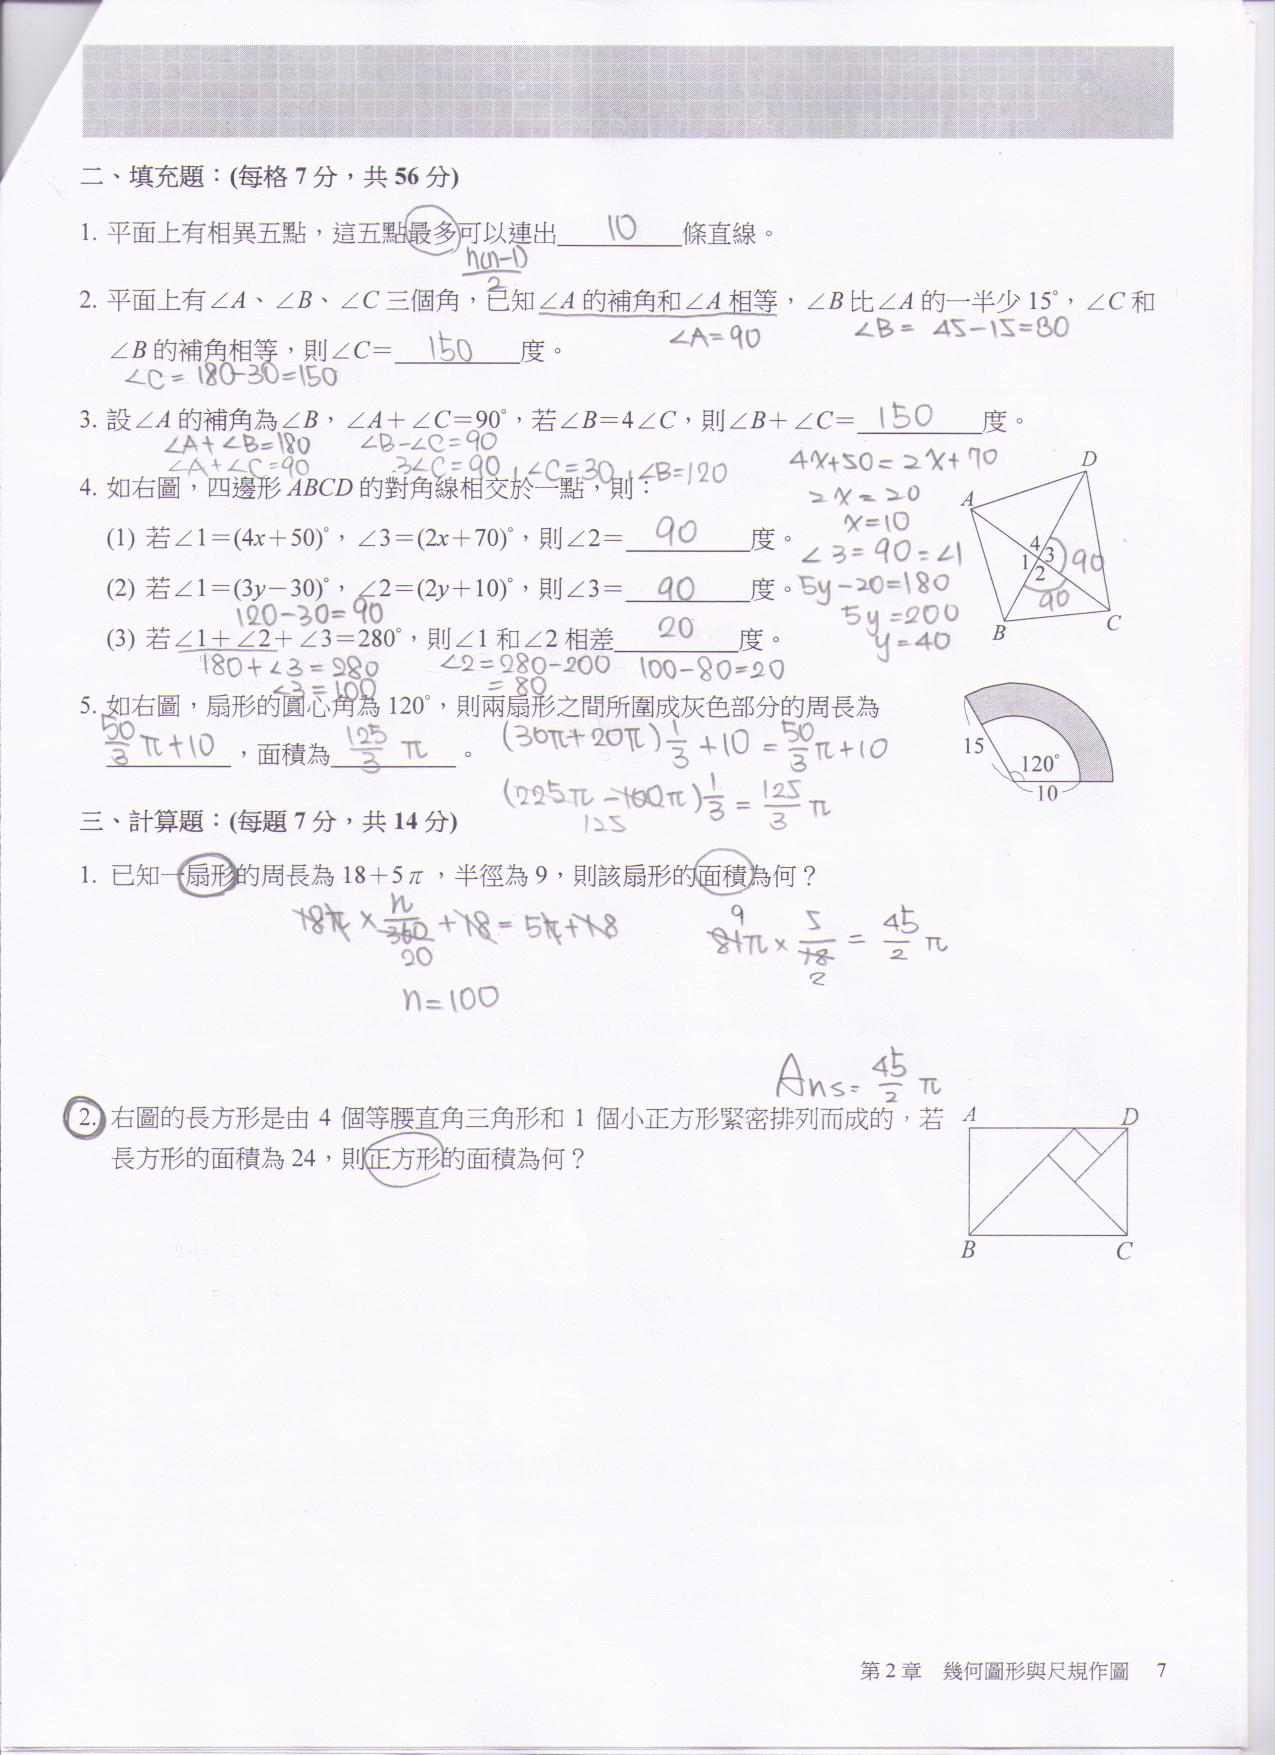 二、填充題：(每格7分，共56分)
1. 平面上有相異五點，這五點最多可以連出 10 條直線。
n(n-1)/2
2. 平面上有∠A、∠B、∠C三個角，已知∠A的補角和∠A相等，∠B比∠A的一半少15°，∠C和
∠A=90 ∠B= 45-15=30
∠B的補角相等，則∠C= 150 度。
∠C= 180-30=150
3. 設∠A的補角為∠B，∠A+∠C=90°，若∠B=4∠C，則∠B+∠C= 150 度。
∠A+∠B=180 ∠B-∠C=90
∠A+∠C=90 3∠C=90，∠C=30，∠B=120
4. 如右圖，四邊形ABCD的對角線相交於一點，則：
(1) 若∠1=(4x+50)°，∠3=(2x+70)°，則∠2= 90 度。
4x+50=2x+70
2x=20
x=10
∠3=90=∠1
(2) 若∠1=(3y-30)°，∠2=(2y+10)°，則∠3= 90 度。
120-30=90
5y-20=180
5y=200
y=40
(3) 若∠1+∠2+∠3=280°，則∠1和∠2相差 20 度。
180+∠3=280 ∠2=280-200 100-80=20
∠3=100 =80
A D
4
1 3 90
2
90
B C
5. 如右圖，扇形的圓心角為120°，則兩扇形之間所圍成灰色部分的周長為
50/3 π+10 ，面積為 125/3 π 。
(30π+20π)1/3+10=50/3 π+10
(225π-100π)1/3=125/3 π
125
15
120°
10
三、計算題：(每題7分，共14分)
1. 已知一扇形的周長為18+5π，半徑為9，則該扇形的面積為何？
18π×n/360+18=5π+18
20
n=100
9
81π×5/18=45/2 π
2
Ans=45/2 π
2. 右圖的長方形是由4個等腰直角三角形和1個小正方形緊密排列而成的，若
長方形的面積為24，則正方形的面積為何？
A D
B C
第2章 幾何圖形與尺規作圖 7